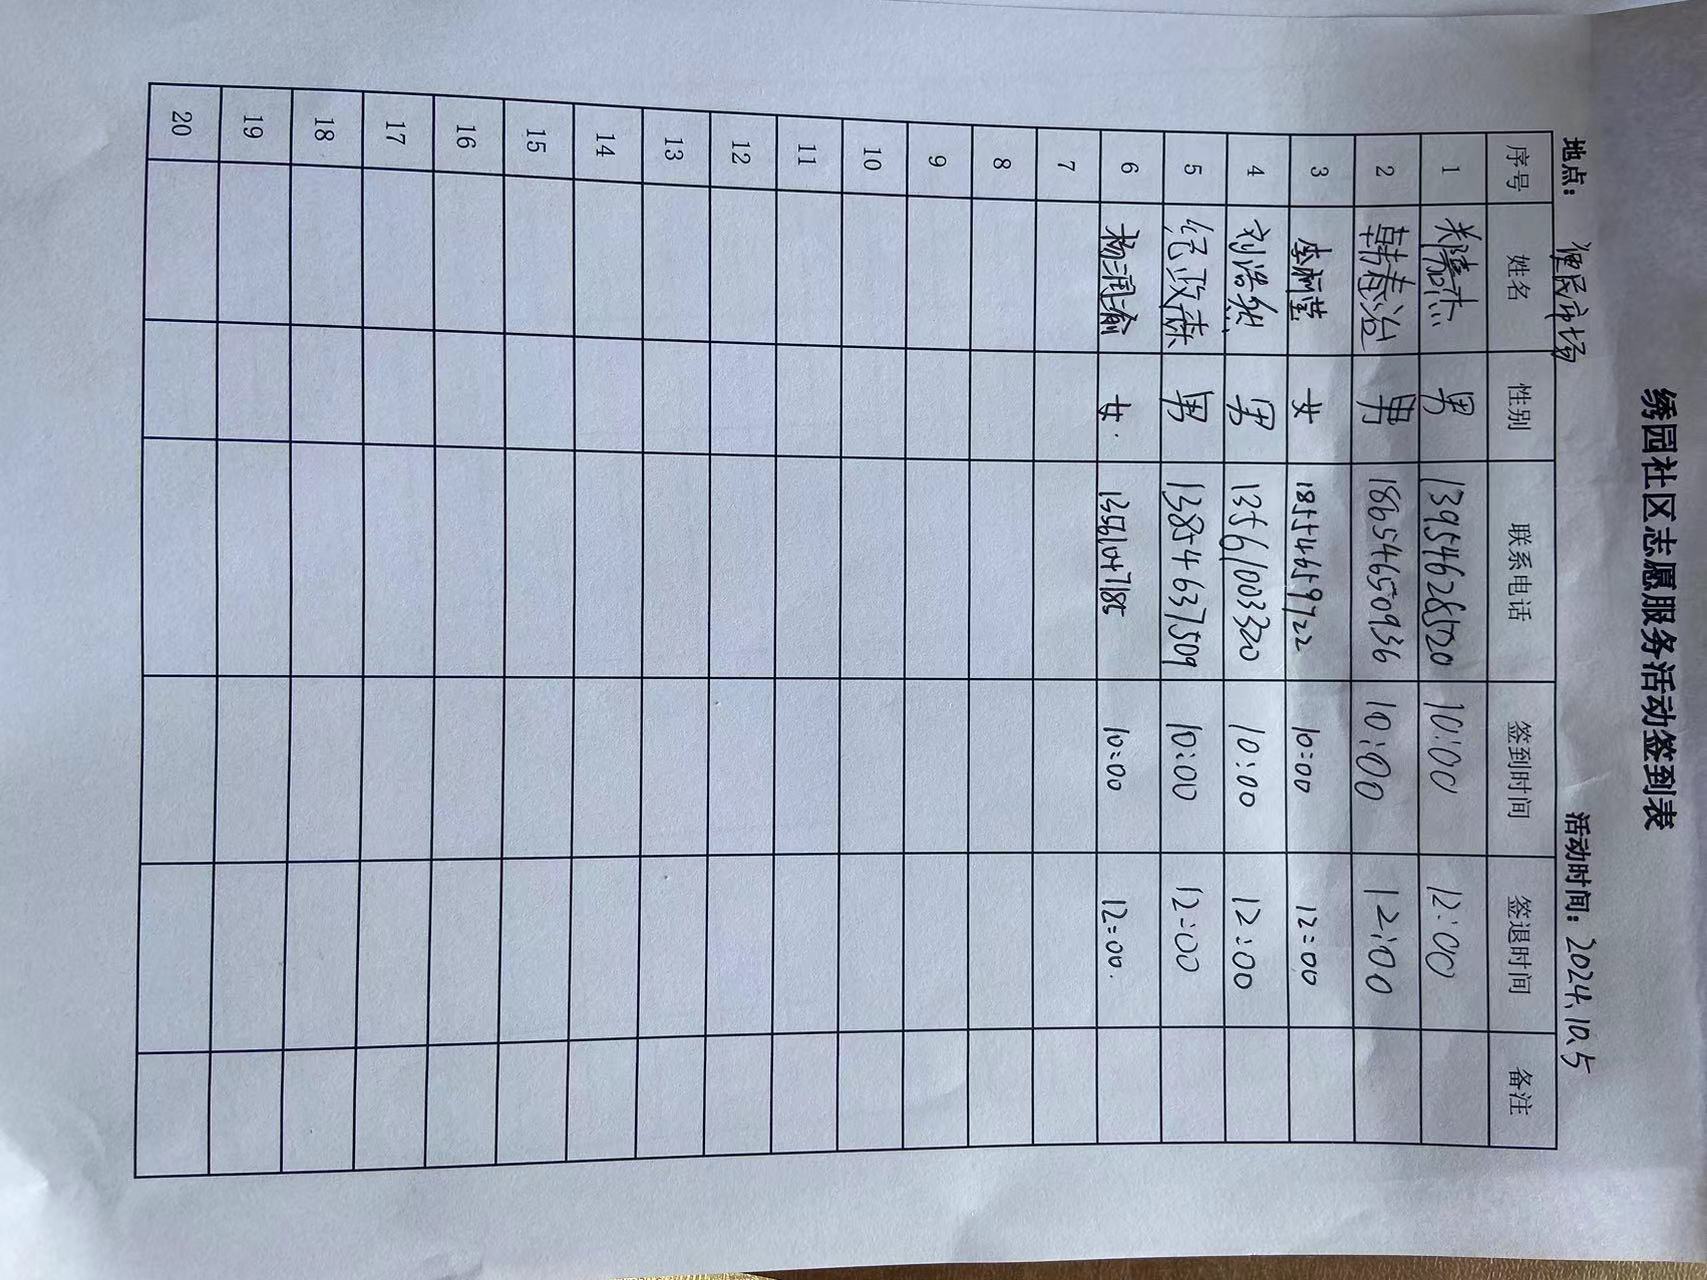 绣园社区志愿服务活动签到表
地点： 便民市场 活动时间：2024.10.5
序号 姓名 性别 联系电话 签到时间 签退时间 备注
1 郑嘉杰 男 13954628520 10:00 12:00
2 韩春治 男 18654650936 10:00 12:00
3 李 男 女 18554659722 10:00 12:00
4 刘浩然 男 13561003320 10:00 12:00
5 纪政森 男 13854637509 10:00 12:00
6 杨润渝 女 13561047185 10:00 12:00
7
8
9
10
11
12
13
14
15
16
17
18
19
20